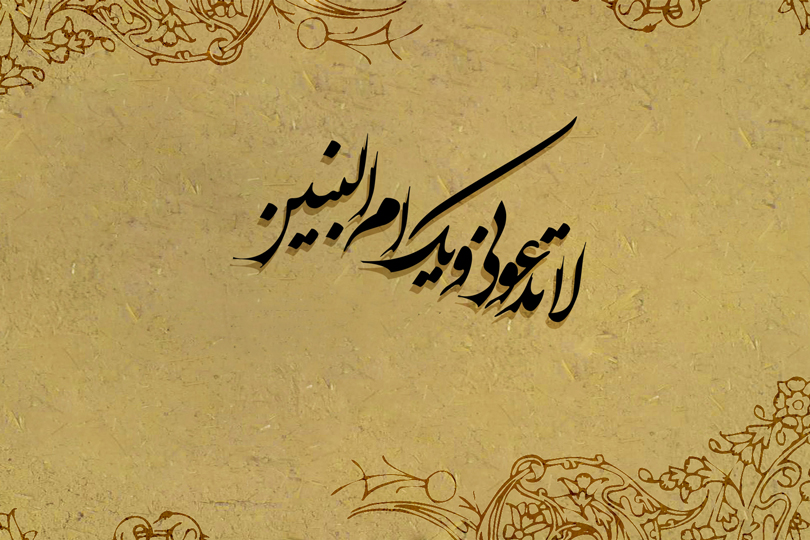 لا تدعونی ویک ام البنین